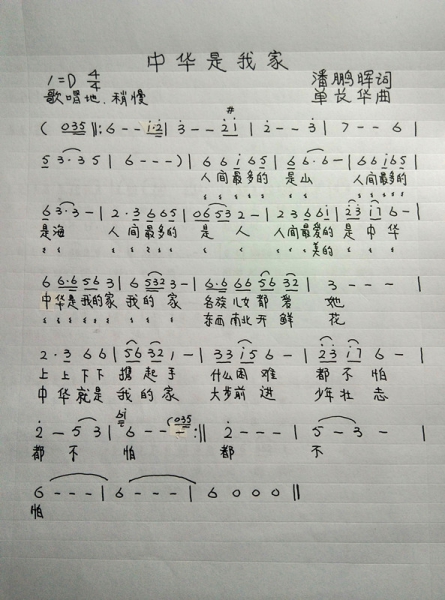 中华是我家
1=D 4/4 潘鹏晖词
歌唱地、稍慢 单长华曲
( 035 ‖: 6 - - i·2 | 3 - - 2i | 2 - - 3 | 7 - - 6 |
5 3·3 3 5 | 6 - - - ) | 6 6 i 6 5 | 6 6·6 - | 6 6 i 6 5 |
人间最多的 是山 人间最多的
6 3·3 - | 2·3 6 6 5 | 0 6 5 3 2 - | 2 3 6 6 i | 2 3 i 7 6 - |
是海 人间最多的 是 人 人间最爱的 是 中华
美的
6 6·6 5 6 3 | 6 5 3 2 3 - | 6·6 6 6 5 6 3 2 | 3 - - - |
中华是我的家 我的 家 各族儿女都爱 她
东西南北开鲜 花
2·3 6 6 | 5 6 3 2 1 - | 3 3 i 5 6 - | 2 3 i 7 6 - |
上上下下 携起手 什么困难 都不怕
中华就是 我的家 大步前进 少年壮志
2 - 5 3 | 6 - - - (035 :‖ 2 - - - | 5 - 3 - |
都 不 怕 都 不
6 - - - | 6 - - - | 6 0 0 0 ‖
怕